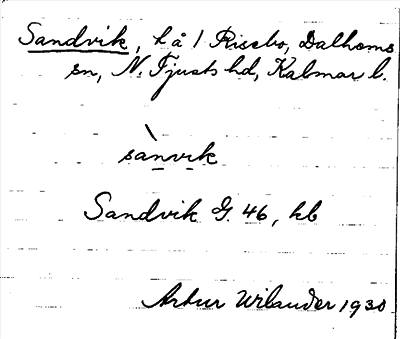 Sandvik, h å / Risebo, Dalhems
sn, N. Tjusts hd, Kalmar l.
sànvık
Sandvik G. 46, hb
Artur Wilander 1930